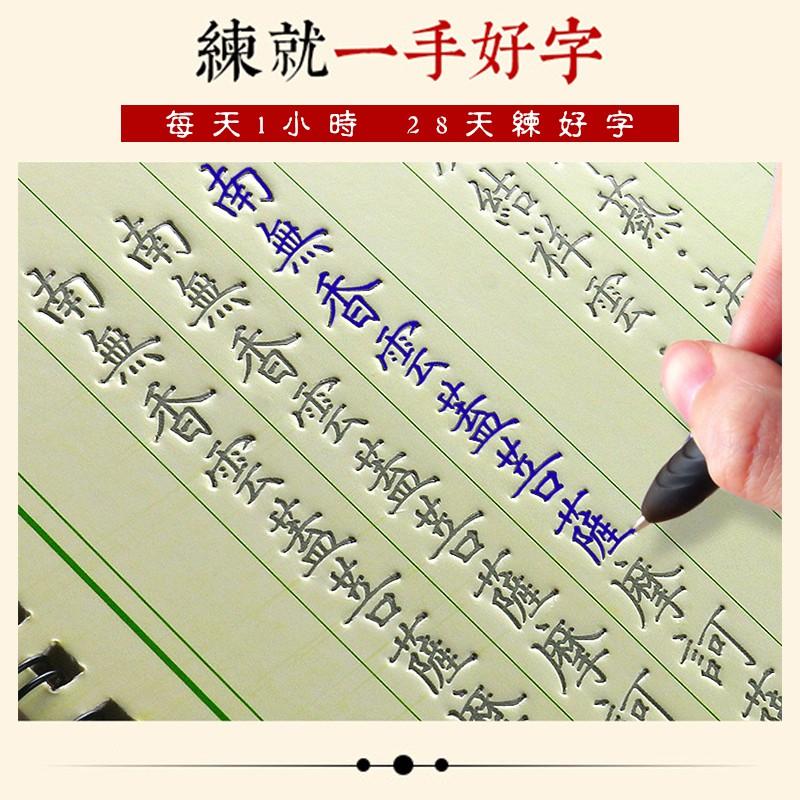 練就一手好字
每天1小時 28天練好字
爇．法
結祥雲
南無香雲蓋菩薩摩訶薩
南無香雲蓋菩薩摩訶
南無香雲蓋菩薩摩